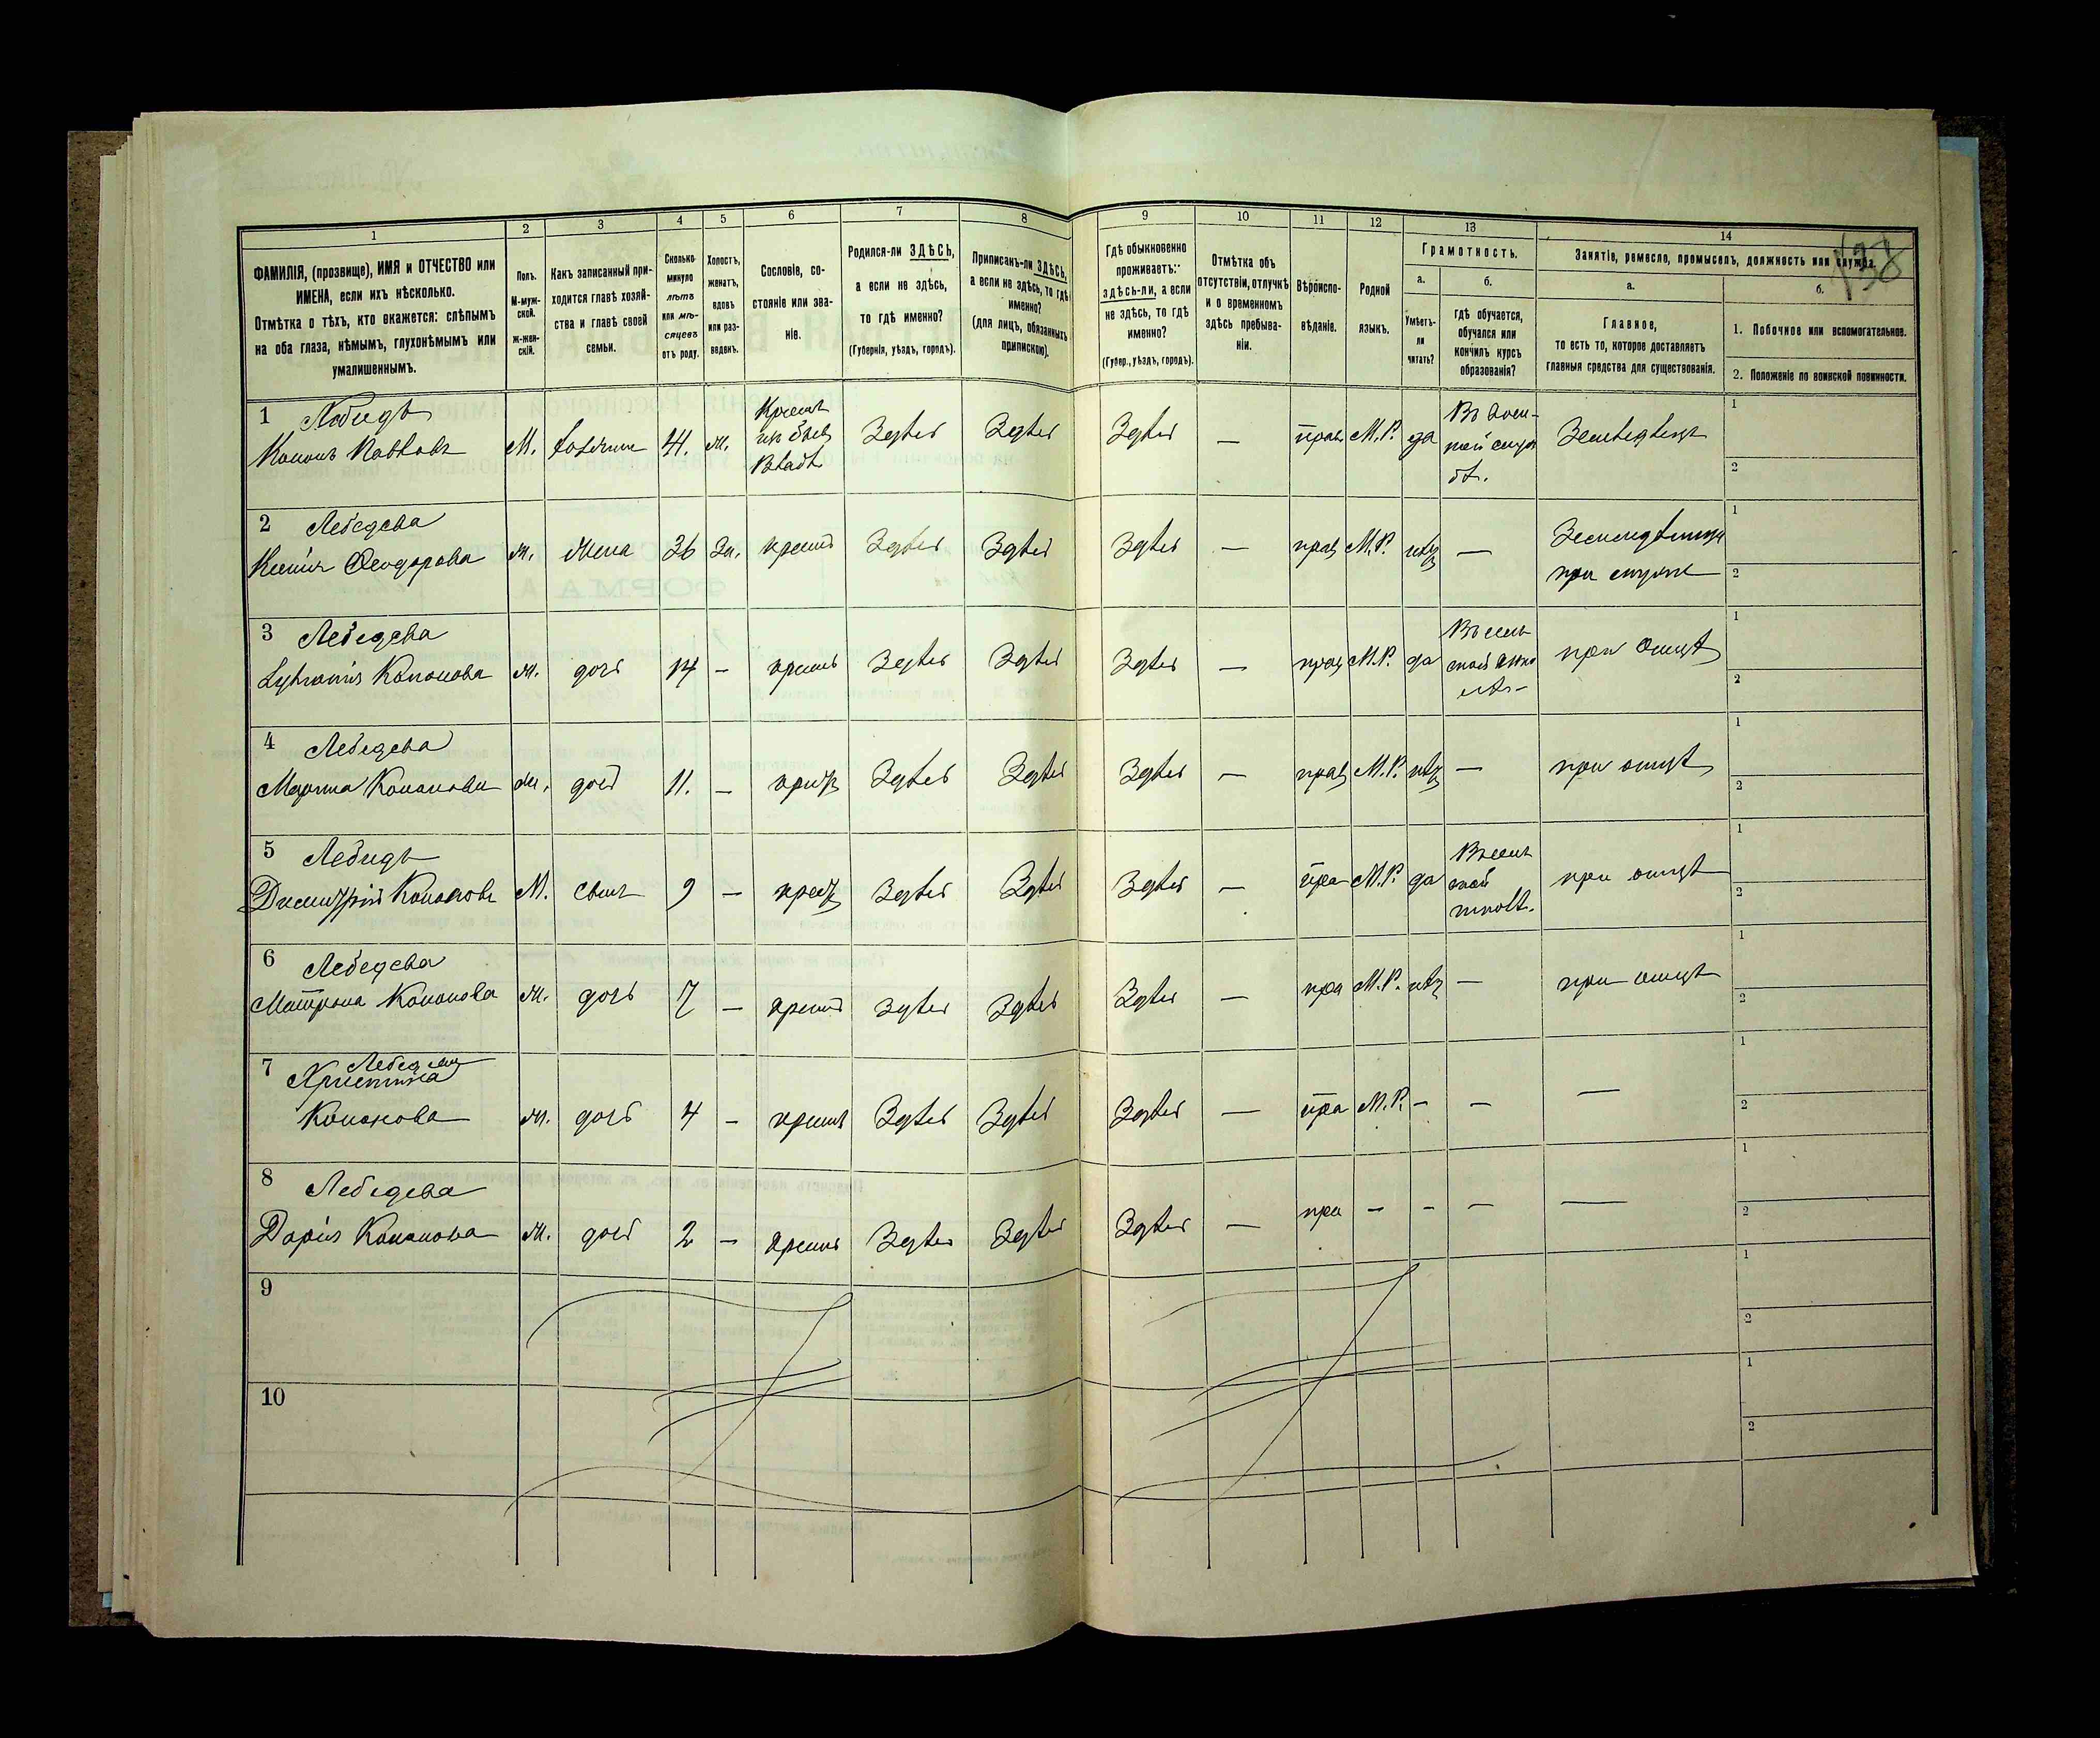 138
1 2 3 4 5 6 7 8 9 10 11 12 13 14
ФАМИЛІЯ, (прозвище), ИМЯ и ОТЧЕСТВО или
ИМЕНА, если ихъ нѣсколько.
Отмѣтка о тѣхъ, кто окажется: слѣпымъ
на оба глаза, нѣмымъ, глухонѣмымъ или
умалишеннымъ.
Полъ.
М-муж-
ской.
Ж-жен-
скій.
Какъ записанный при-
ходится главѣ хозяй-
ства и главѣ своей
семьи.
Сколько
минуло
лѣтъ
или мѣ-
сяцевъ
отъ роду.
Холостъ,
женатъ,
вдовъ
или раз-
веденъ.
Сословіе, со-
стояніе или зва-
ніе.
Родился-ли ЗДѢСЬ,
а если не здѣсь,
то гдѣ именно?
(Губернія, уѣздъ, городъ).
Приписанъ-ли ЗДѢСЬ,
а если не здѣсь, то гдѣ
именно?
(для лицъ, обязанныхъ
припискою).
Гдѣ обыкновенно
проживаетъ:
здѣсь-ли, а если
не здѣсь, то гдѣ
именно?
(Губер., уѣздъ, городъ).
Отмѣтка объ
отсутствіи, отлучкѣ
и о временномъ
здѣсь пребыва-
ніи.
Вѣроиспо-
вѣданіе.
Родной
языкъ.
Грамотность.
а.
Умѣетъ-
ли
читать?
б.
Гдѣ обучается,
обучался или
кончилъ курсъ
образованія?
Занятіе, ремесло, промыселъ, должность или служба.
а.
Главное,
то есть то, которое доставляетъ
главныя средства для существованія.
б.
1. Побочное или вспомогательное.
2. Положеніе по воинской повинности.
1 Лебидь
Кононъ М. 41. ж. Здѣсь Здѣсь Здѣсь — прав М.Р. да Земледѣлецъ 1 2
2 Лебедева
Ксенія Феодорова ж. жена 36 За. крест Здѣсь Здѣсь Здѣсь — прав М.Р. нѣт — 1 2
при мужѣ
3 Лебедева
Кононова ж. дочь 14 — крест Здѣсь Здѣсь Здѣсь — прав М.Р. да при отцѣ 1 2
4 Лебедева
Марина Кононова ж. дочь 11. — крест Здѣсь Здѣсь Здѣсь — прав М.Р. нѣт — при отцѣ 1 2
5 Лебидь
Димитрій Кононовъ М. сынъ 9 — крест Здѣсь Здѣсь Здѣсь — пра М.Р. да при отцѣ 1 2
6 Лебедева
Матрона Кононова ж. дочь 7 — крест Здѣсь Здѣсь Здѣсь — пра М.Р. нѣт — при отцѣ 1 2
7 Лебедева
Христина
Кононова ж. дочь 4 — крест Здѣсь Здѣсь Здѣсь — пра М.Р. — — — 1 2
8 Лебедева
Дарія Кононова ж. дочь 2 — крест Здѣсь Здѣсь Здѣсь — пра — — — — 1 2
9 1 2
10 1 2